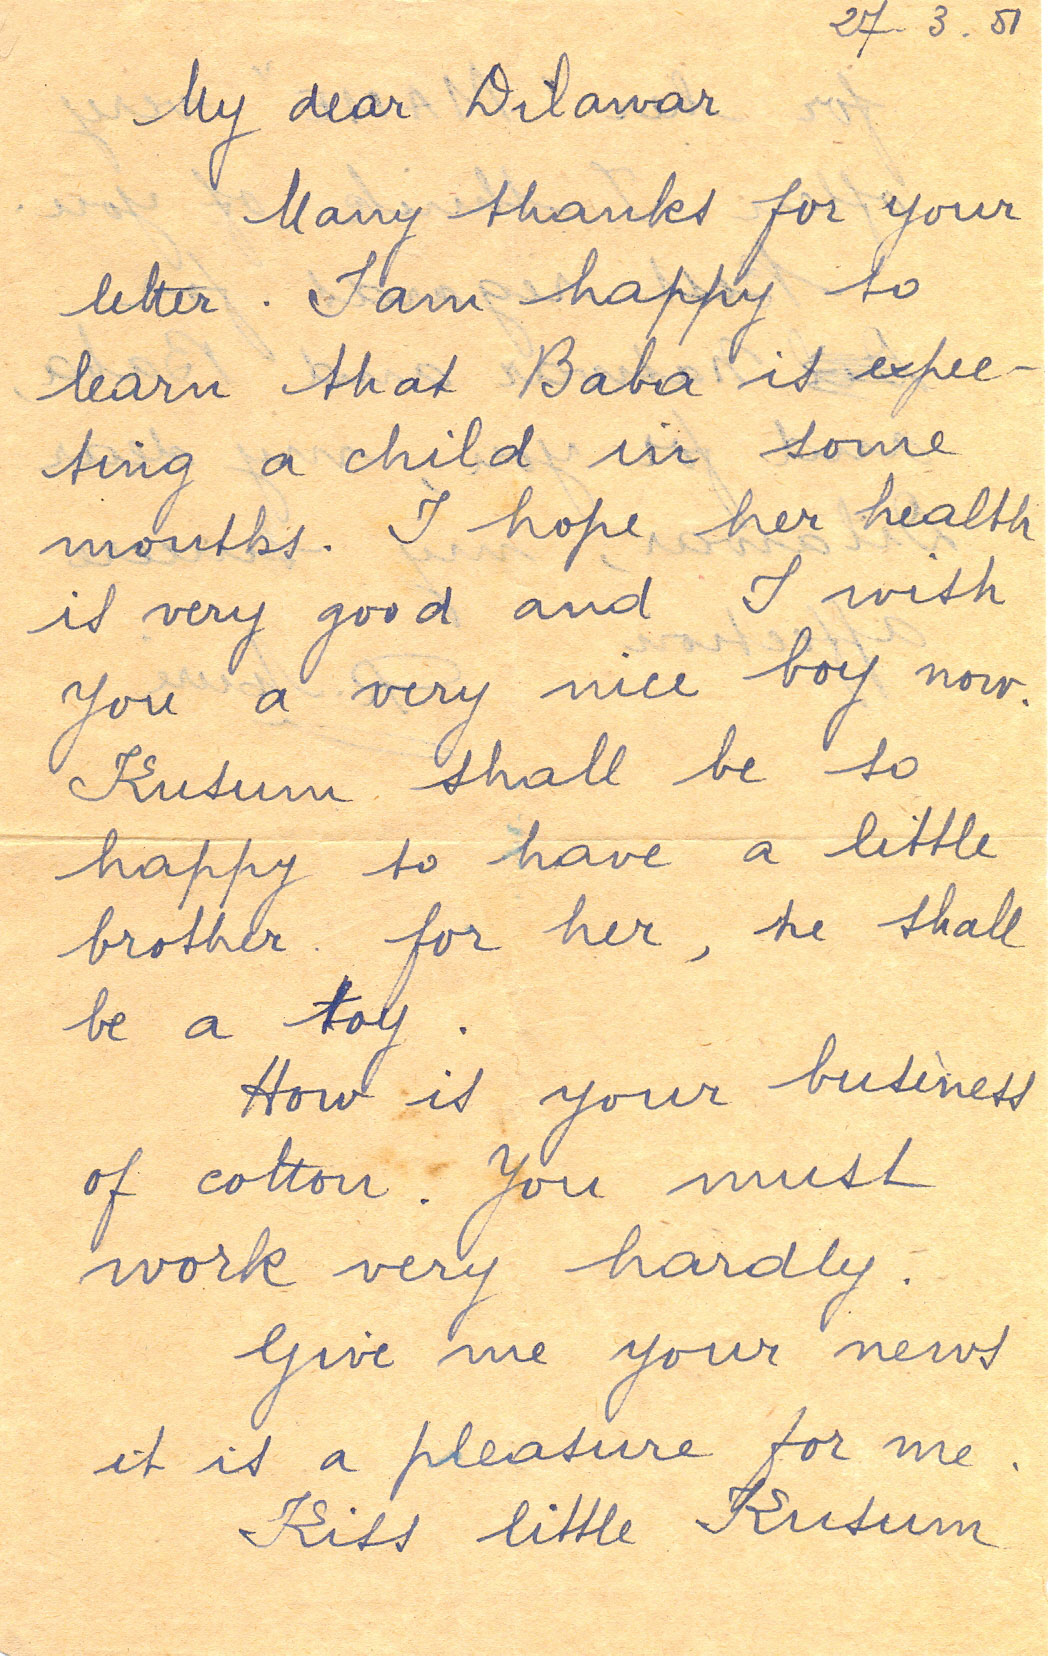 27. 3. 51
My dear Dilawar
Many thanks for your
letter. I am happy to
learn that Baba is expec-
ting a child in some
months. I hope her health
is very good and I wish
you a very nice boy now.
Kusum shall be so
happy to have a little
brother. for her, he shall
be a toy.
How is your business
of cotton. You must
work very hardly.
Give me your news
it is a pleasure for me.
Kiss little Kusum